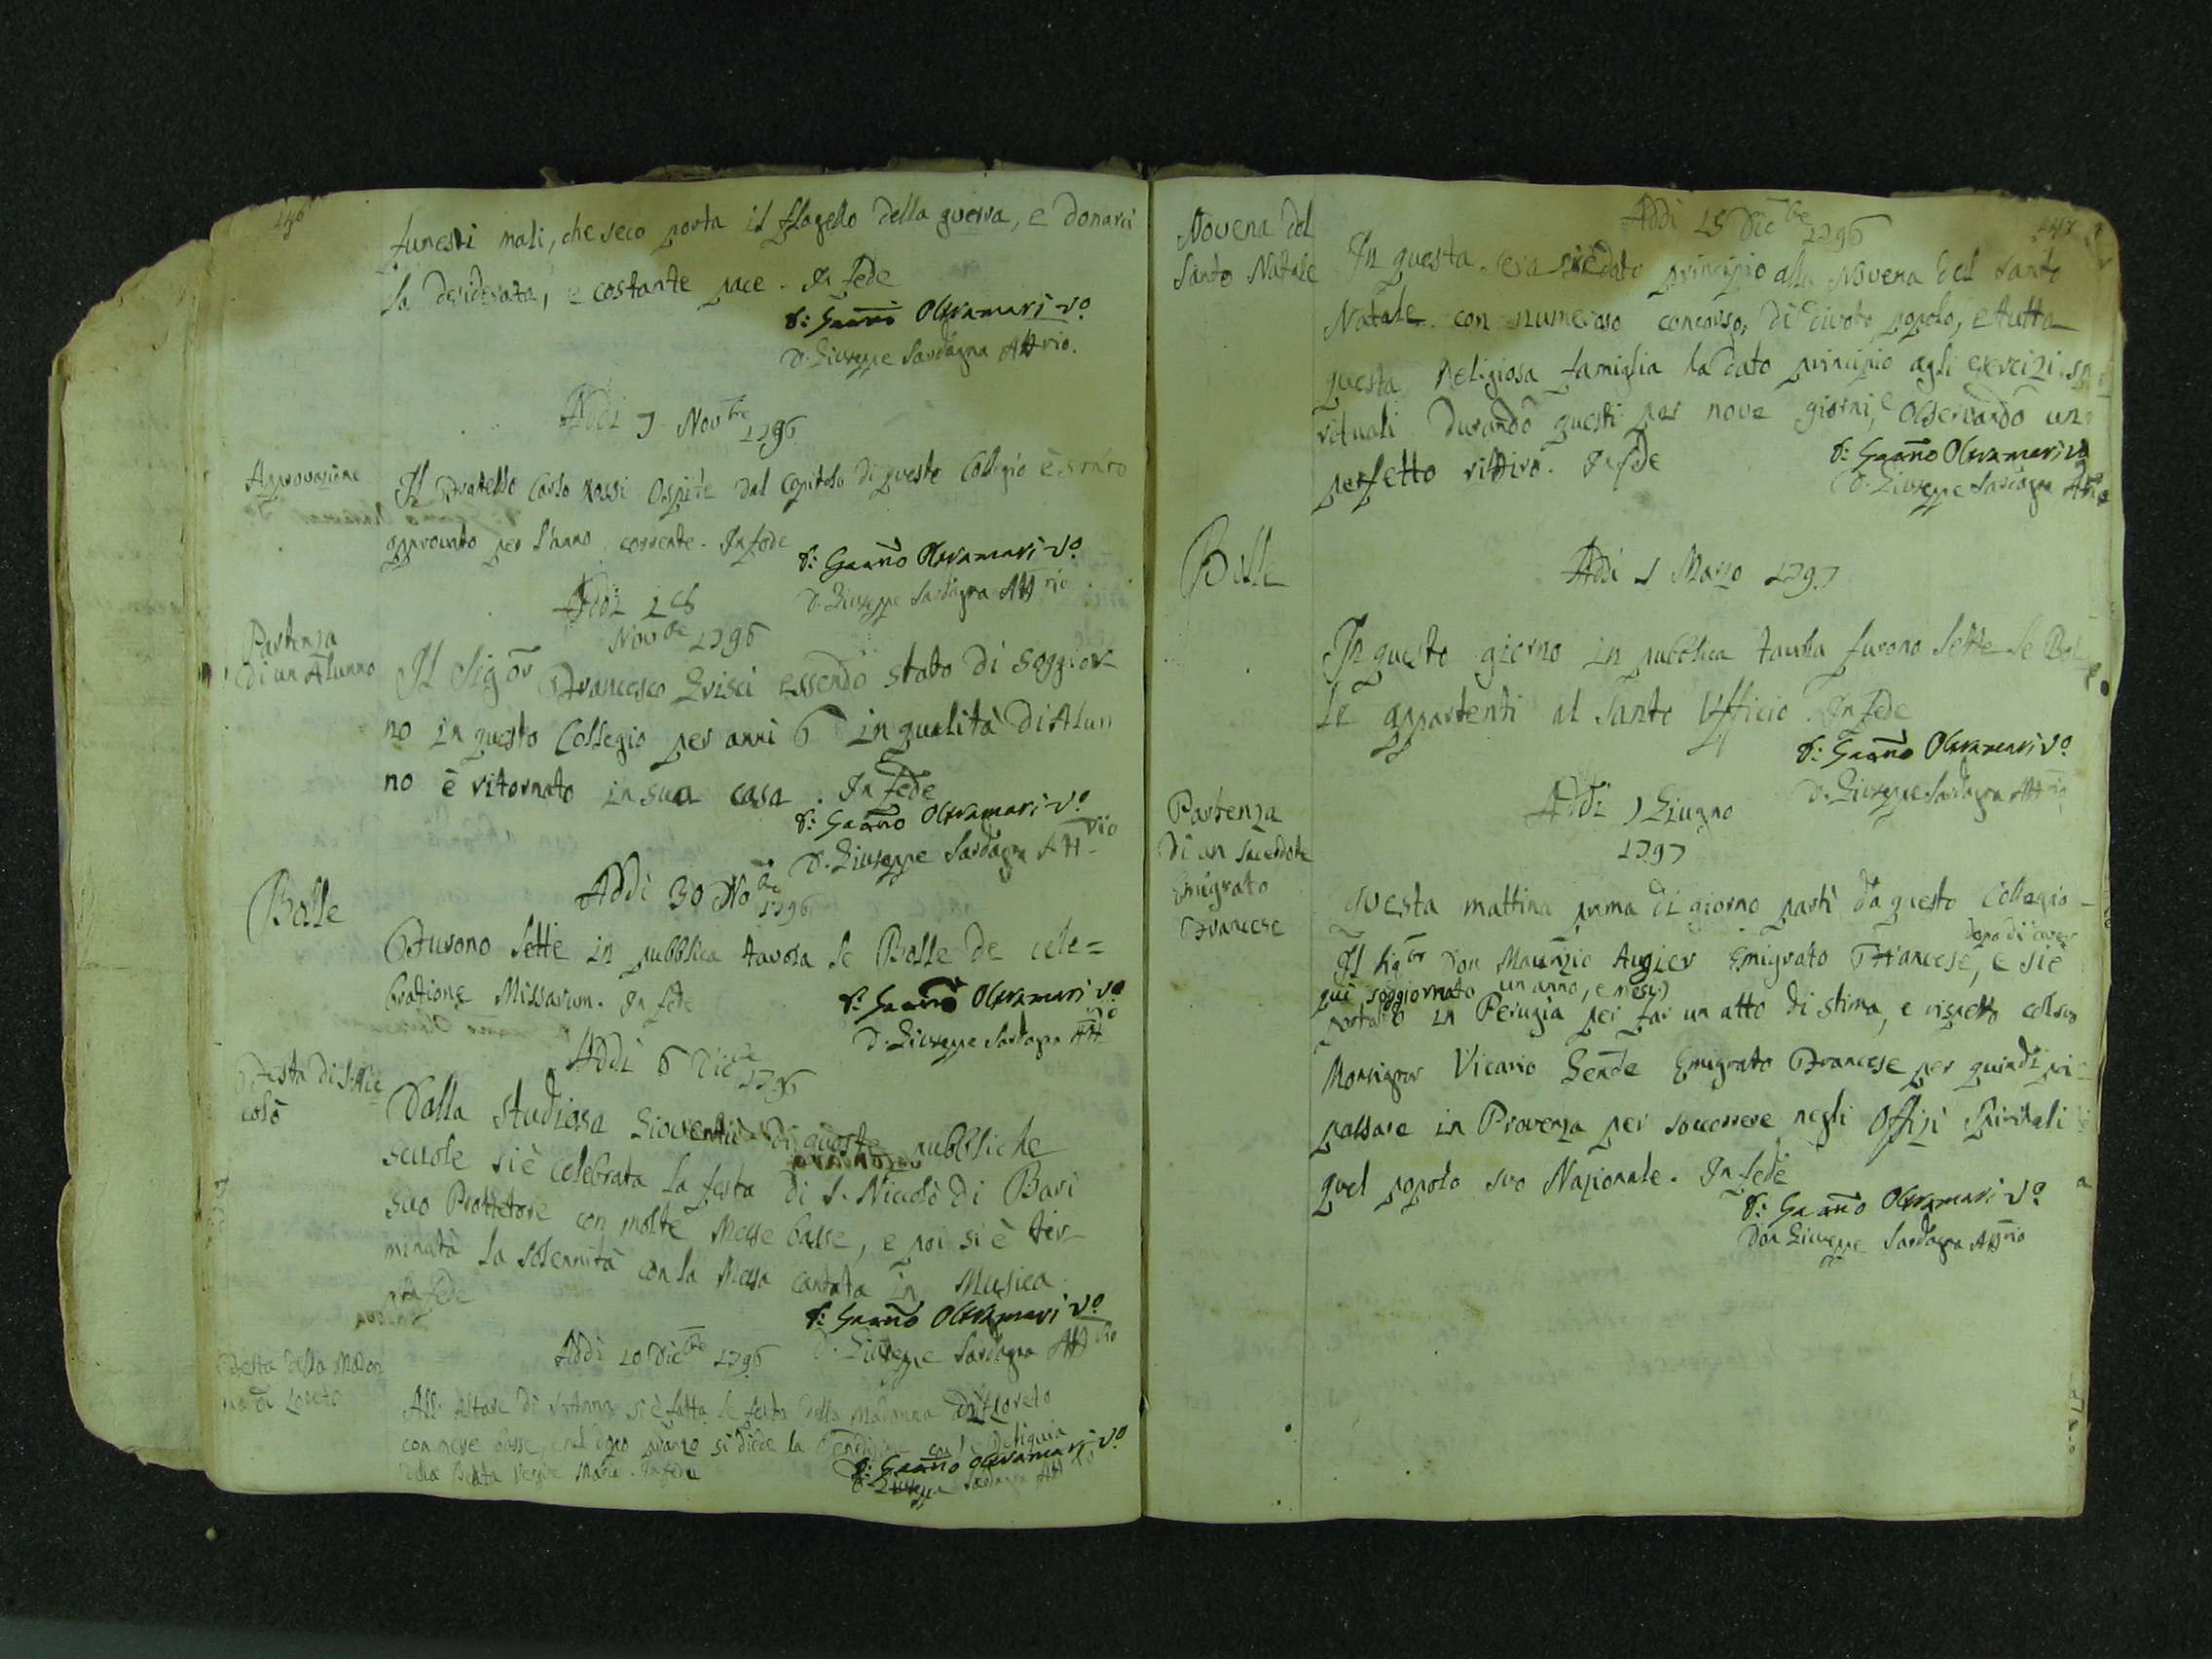 146
funesti mali, che seco porta il flagello della guerra, e donarci
la desiderata, e costante pace. In fede
P: Gaano Oltramari Vo
D. Giuseppe Sardagna Attrio.
Addi 7 Novbre 1796
Approvazione
Il Fratello Carlo Rossi Ospite dal Capitolo di questo Collegio è stato
approvato per l'anno corrente. In fede
P: Gaano Oltramari Vo
D. Giuseppe Sardagna Attrio
Addi 28
Novbre 1796
Partenza
di un Alunno
Il Sigor Francesco Grisci essendo stato di soggior
no in questo Collegio per anni 6 in qualità di Alun
no è ritornato in sua casa. In fede
P: Gaano Oltramari Vo
D. Giuseppe Sardagna Attrio
Addi 30 Nobre 1796
Bolle
Furono lette in pubblica tavola le Bolle de cele=
bratione Missarum. In fede
P: Gaano Oltramari Vo
D. Giuseppe Sardagna Attrio
Addi 6 Dicbre 1796
Festa di S. Nic
colò
Dalla studiosa Gioventù di queste pubbliche
scuole si è celebrata la festa di S. Niccolò di Bari
suo Prottetore con molte Messe basse, e poi si è ter-
minata la solennità con la Messa cantata in Musica
In fede
P: Gaano Oltramari Vo
D. Giuseppe Sardagna Attrio
Addi 10 Dicbre 1796
Festa della Madon
na di Loreto
All' Altare di S. Anna si è fatta la festa della Madonna di Loreto
con messe basse, e nel dopo pranzo si diede la Benedizione con la Reliquia
della Beata Vergine Maria. In fede
P: Gaano Oltramari Vo
D. Giuseppe Sardagna Attrio
147
Addi 15 Dicbre 1796
Novena del
Santo Natale
In questa sera si è dato principio alla Novena del Santo
Natale con numeroso concorso di divoto popolo, e tutta
questa Religiosa famiglia ha dato principio agli esercizi spi
rituali durando questi per nove giorni, e osservando un
perfetto rittiro. In fede
P: Gaano Oltramari Vo
D. Giuseppe Sardagna Attrio
Bolle
Addi 1 Marzo 1797
In questo giorno in pubblica tavola furono lette le Bol
le appartenti al Santo Ufficio. In fede
P: Gaano Oltramari Vo
D. Giuseppe Sardagna Attrio
Addi 7 Giugno
1797
Partenza
di un Sacerdote
Emigrato
Francese
Questa mattina prima di giorno partì da questo Collegio
dopo di aver
Il Sigor Don Maurizio Augier Emigrato Francese, e si è
qui soggiornato un anno, e mesi 7
portato in Perugia per far un atto di stima, e rispetto col suo
Monsignor Vicario Gende Emigrato Francese per quindi
passare in Provenza per soccorrere negli Offizi Spirituali
quel popolo suo Nazionale. In fede
P: Gaano Oltramari Vo
Don Giuseppe Sardagna Attrio